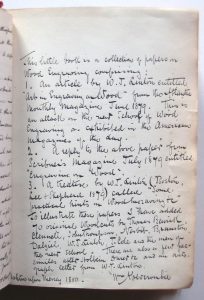 This little book is a collection of papers on
Wood Engraving comprising
1. An article by W. J. Linton entitled
"Art in Engraving on Wood" from the Atlantic
Monthly Magazine June 1879. This is
an attack on the new School of Wood
Engraving as exhibited in the American
magazines of the day.
2. A reply to the above paper from
Scribner's Magazine July 1879 entitled
Engraving on "Wood".
3. A treatise by W. J. Linton (Boston,
Lee & Shephard 1879) called "Some
practical hints on Wood Engraving" &c
To illustrate these papers I have added
to original Bewick Thomas Bewick
Clennell, Harvey, Branston,
Dalziel, W. J. Linton, & also some of
the new School. There are also
similar letters from and an auto-
graph letter from W. J. Linton
Wm
1880.